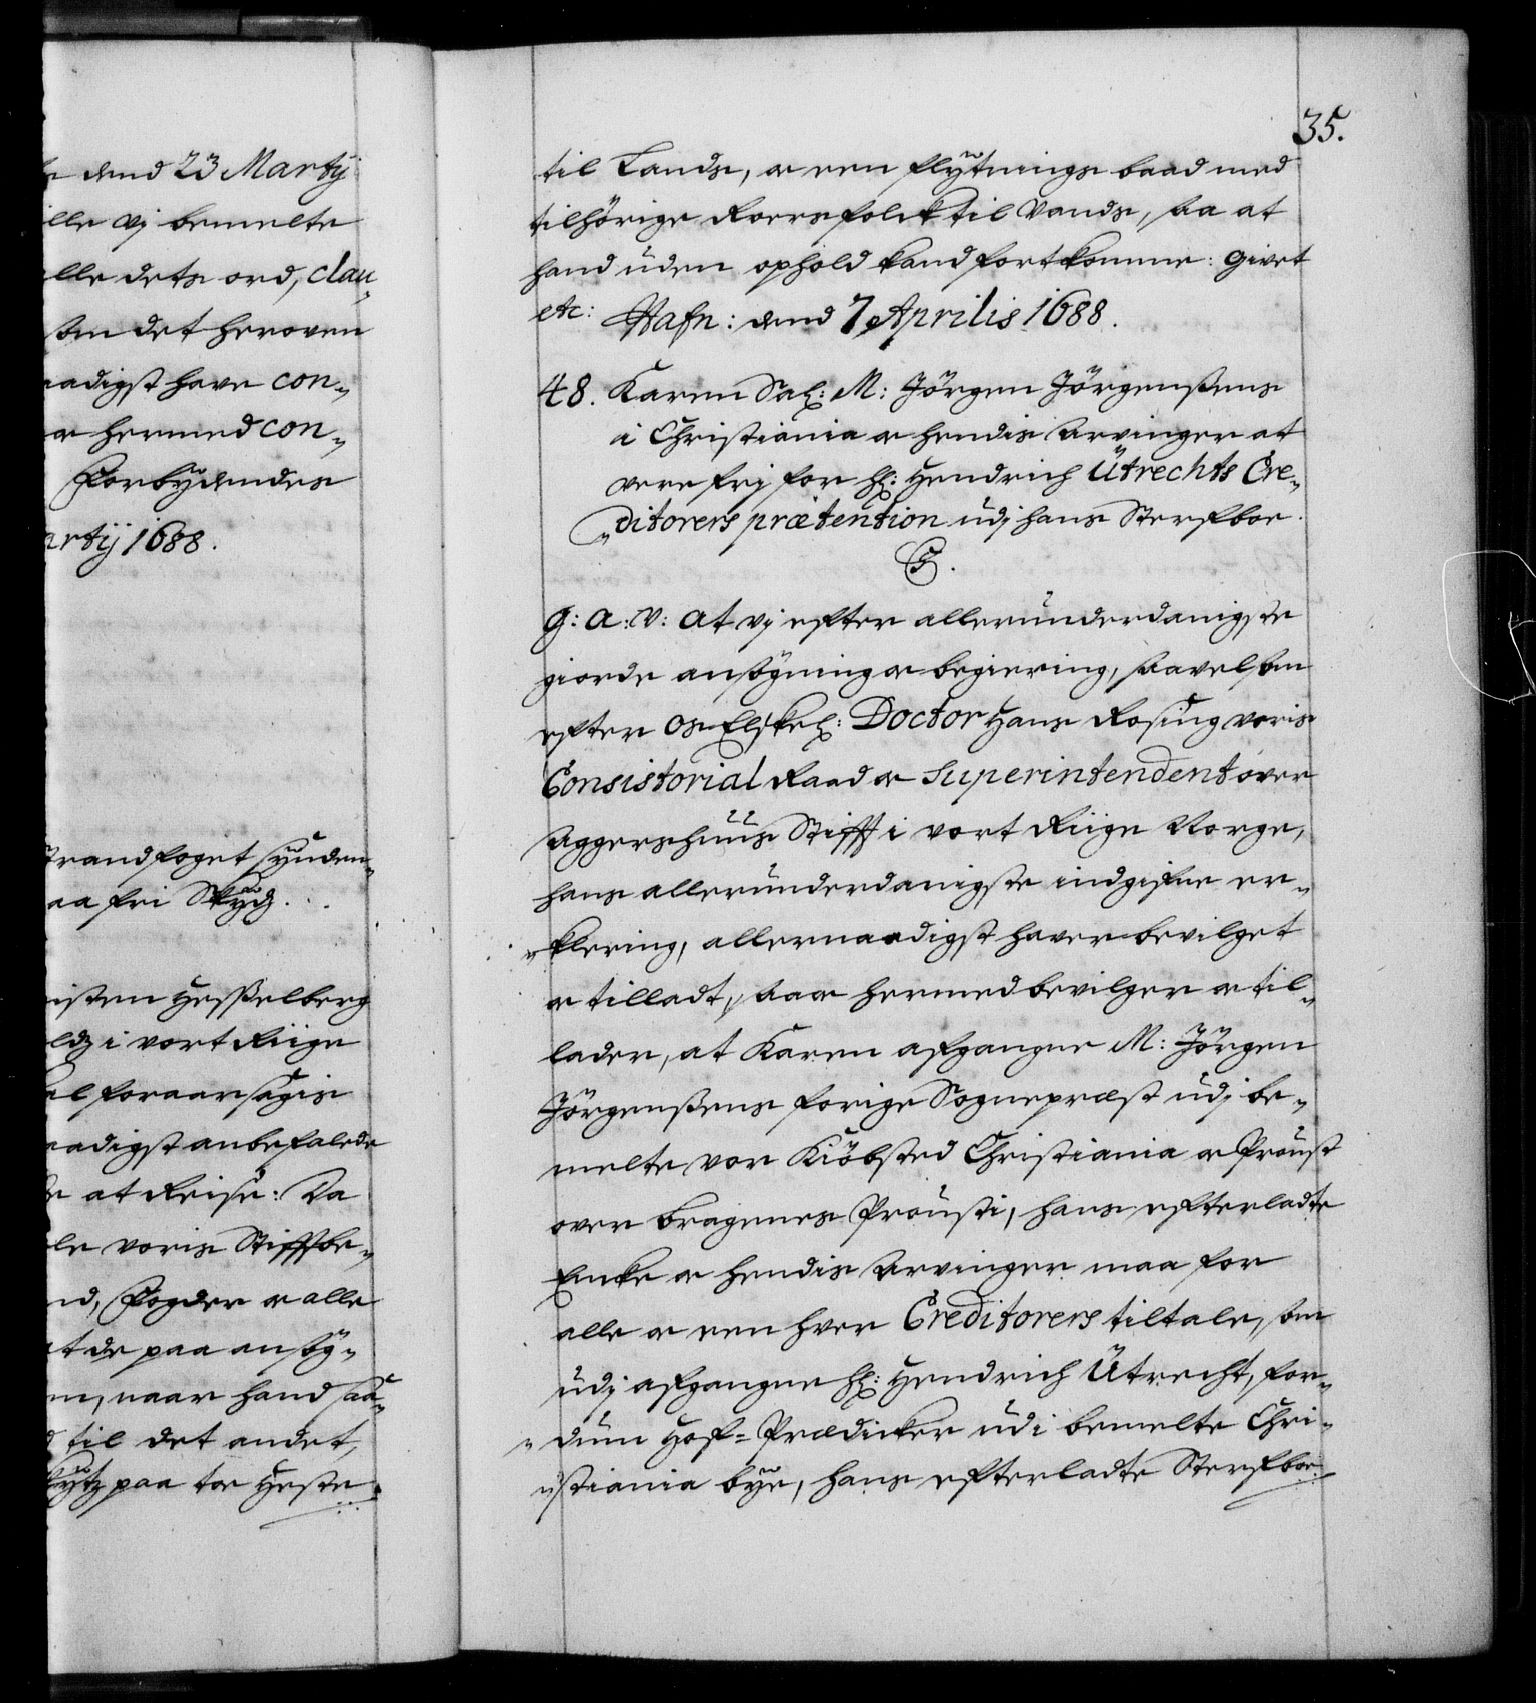 dend 23 Martij
ille vj bemelte
alle dets ord, clau„
som det heroven
aadigst have con„
hermed con„
Forbydendes
artij 1688.
Strandfoget synden„
aa fri Skyds...
isten Hesselberg
i vort Riige
foraarsagis
aadigst anbefalede
at Reise: Da
voris Stifftbe„
nd, Fogder oc alle
at de paa ansög„
naar hand saa„
til det andet,
paa toe Heste.
35.
til Lands, oc een flytnings baad med
tilhörige Roersfolck til Vands, saa at
hand uden ophold kand fortkomme: Givet
etc: Hafn: dend 7 Aprilis 1688.
48. Karen Sal: M: Jörgen Jörgensens
i Christiania oc hendis Arvinger at
vere frj for Hr: Hendrich Ütrechts Cre„
„ditorers prætention udj hans Sterfboe.
G.
G: A: V: At vj efter allerunderdanigste
giorde ansögning oc begiering, saavelsom
efter os Elskel: Doctor Hans Rosing voris
Consistorial Raad oc Superintendent over
Aggershuus Stifft i vort Riige Norge,
hans allerunderdanigste indgifne er„
„klering, allernaadigst haver bevilget
oc tilladt, saa oc hermed bevilger oc til„
lader, at Karen afgangne M: Jörgen
Jörgensens forige Sognepræst udj be„
melte vor Kiöbsted Christiania oc Proust
over Bragenes Prousti, hans efterladte
Encke oc hendis Arvinger maa for
alle oc een hver Creditorers tiltale, som
udj afgangne Hr: Hendrich Ütrecht, for„
„dum Hof=Prædicker udi bemelte Chri„
„stiania bye, hans efterladte Sterfboe